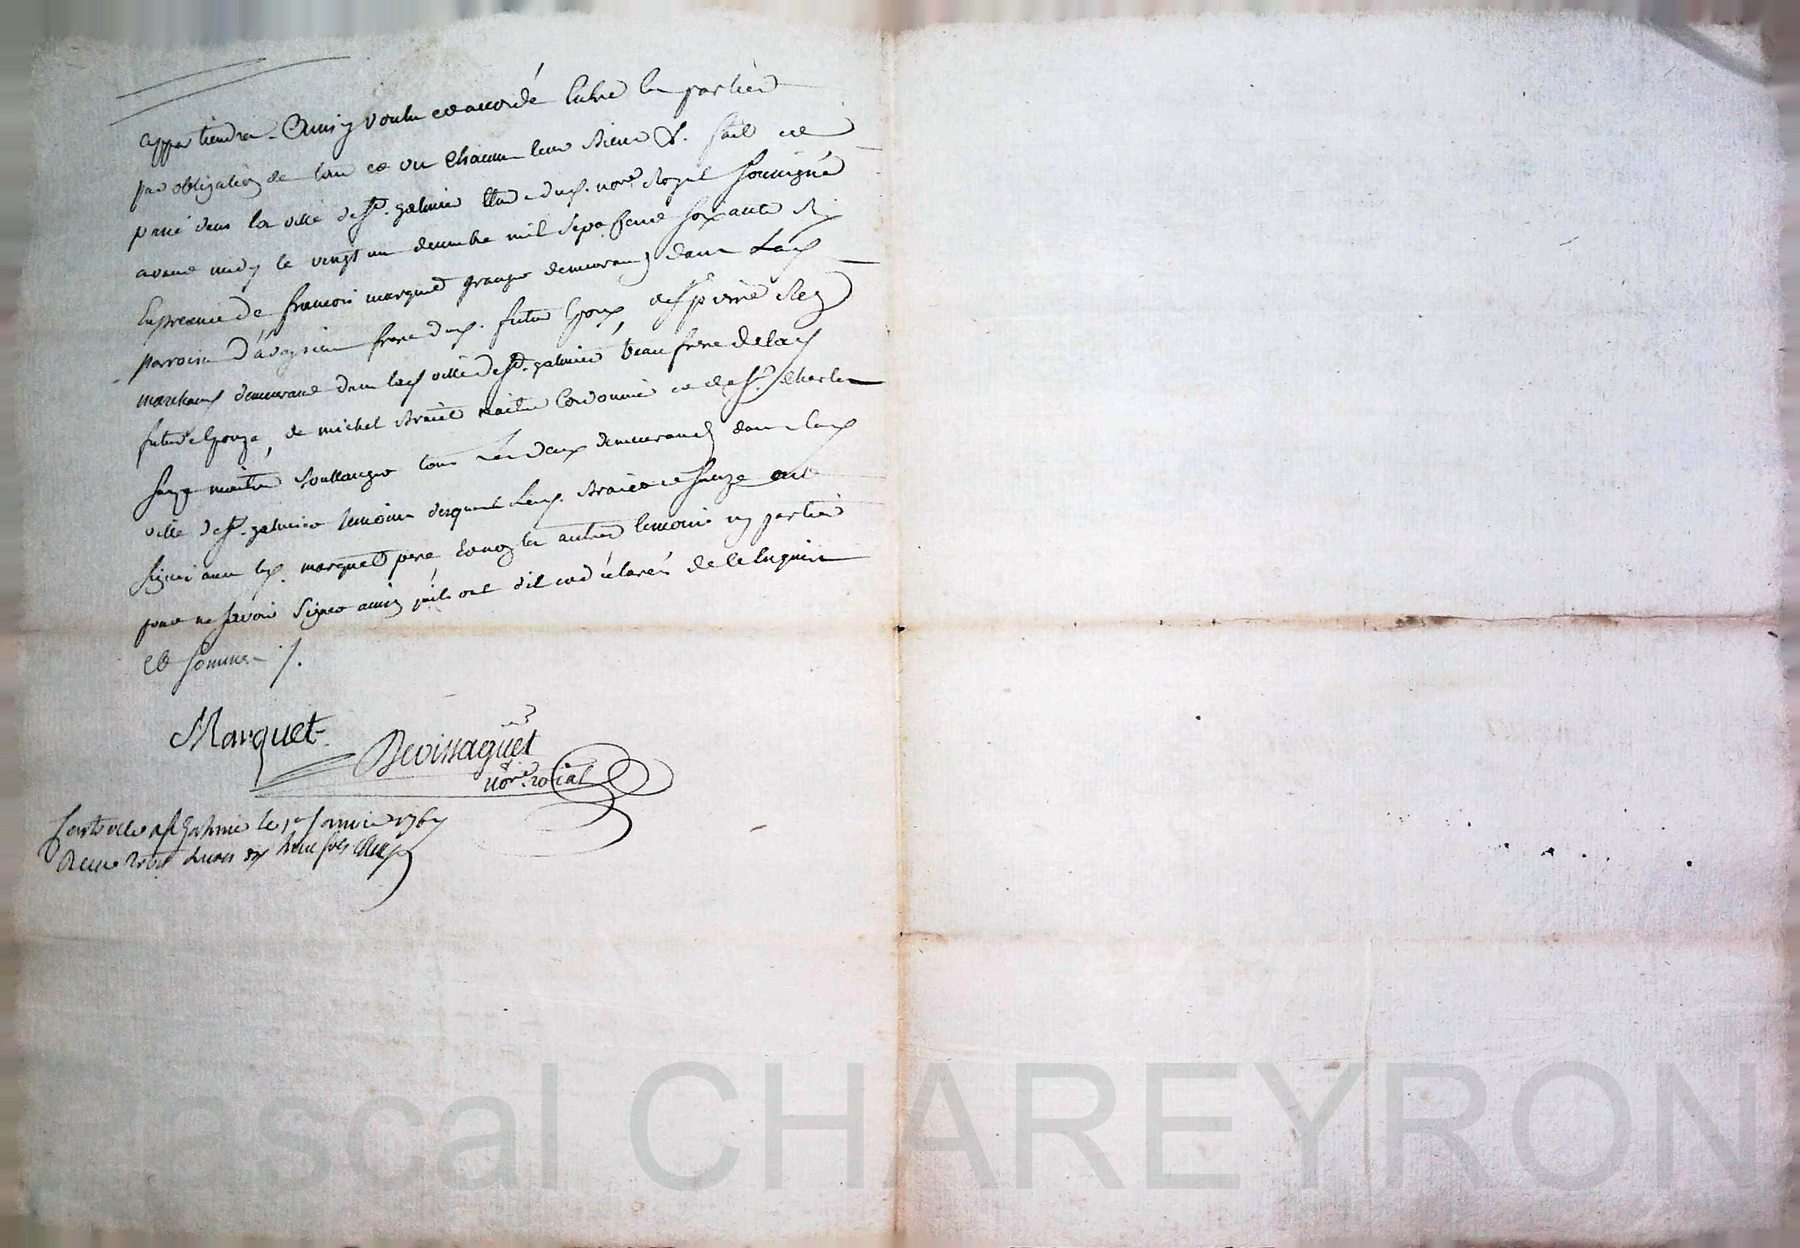 appartiendra. Ainsy voulu et accordé entre les parties
par obligation de tout ce qu chacun leur &. fait et
passé dans la ville de St. galmier Etude dud. nore. Royal soussigné
avant midy le vingt un decembre mil sept cent soixante six
En presence de francois marquet granger demeurant dans lad
parroisse d'aveysieu frere dud. futur Epoux, de Sr pierre
marchand demeurant dans lad ville de St. galmier beau frere de lad
future Epouze, de michel maitre Cordonnier et de Sr. Charles
maitre boullanger tous les deux demeurants dans lad
ville de St. galmier temoins lesquels ont
signé avec led. marquet pere non les autres temoins ny parties
pour ne savoir signer ainsy quils ont dit et déclarés de ce Enquis
et sommes /.
Marquet
nore. roial
St Galmier le 1er Janvier 1767
Recu livres sols
Pascal CHAREYRON